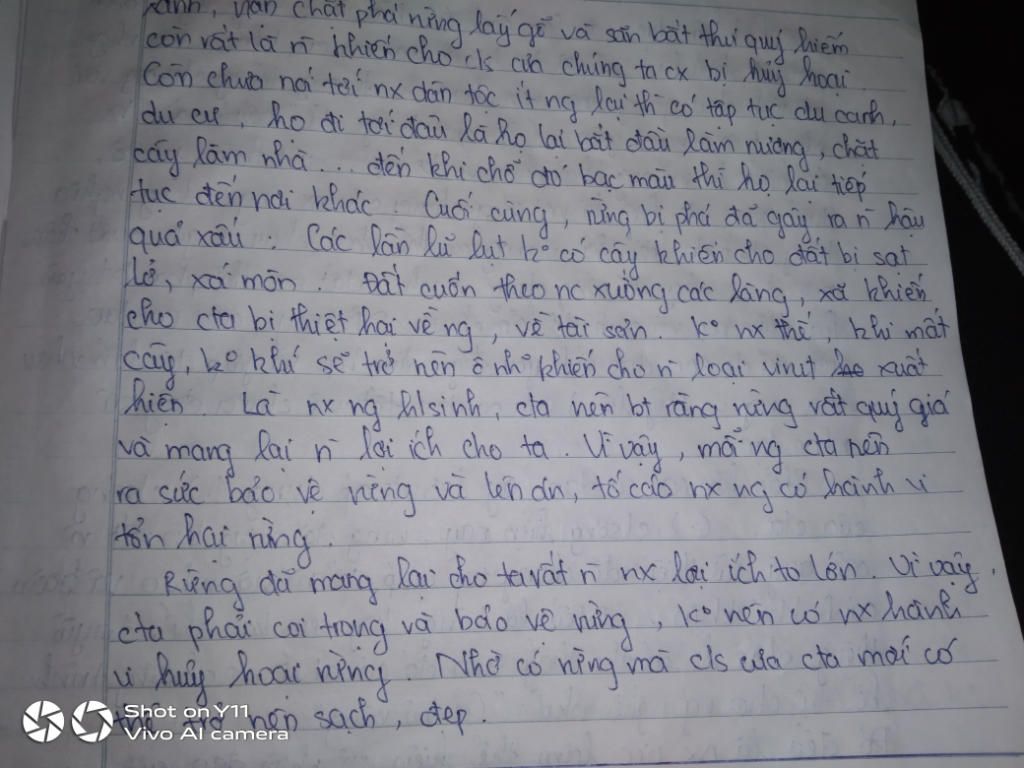 nạn chặt phá rừng lấy gỗ và săn bắt thú quý hiếm
còn rất là n̄ khiến cho c/s của chúng ta cx bị hủy hoại.
Còn chưa nói tới nx dân tộc ít ng lại thì có tập tục du canh,
du cư, họ đi tới đâu là họ lại bắt đầu làm nương, chặt
cây làm nhà... đến khi chỗ đó bạc màu thì họ lại tiếp
tục đến nơi khác. Cuối cùng, rừng bị phá đã gây ra n̄ hậu
quả xấu: Các lần lũ lụt k° có cây khiến cho đất bị sạt
lở, xói mòn. Đất cuốn theo nc xuống các làng, xã khiến
cho cta bị thiệt hại về ng, về tài sản. K° nx thế, khi mất
cây, k° khí sẽ trở nên ô nh° khiến cho n̄ loại virut xuất
hiện. Là nx ng h/sinh, cta nên bt rằng rừng rất quý giá
và mang lại n̄ lợi ích cho ta. Vì vậy, mỗi ng cta nên
ra sức bảo vệ rừng và lên án, tố cáo nx ng có hành vi
tổn hại rừng.
Rừng đã mang lại cho ta rất n̄ nx lợi ích to lớn. Vì vậy,
cta phải coi trọng và bảo vệ rừng, k° nên có nx hành
vi hủy hoại rừng. Nhờ có rừng mà c/s của cta mới có
thể trở nên sạch, đẹp.
Shot on Y11
Vivo AI camera